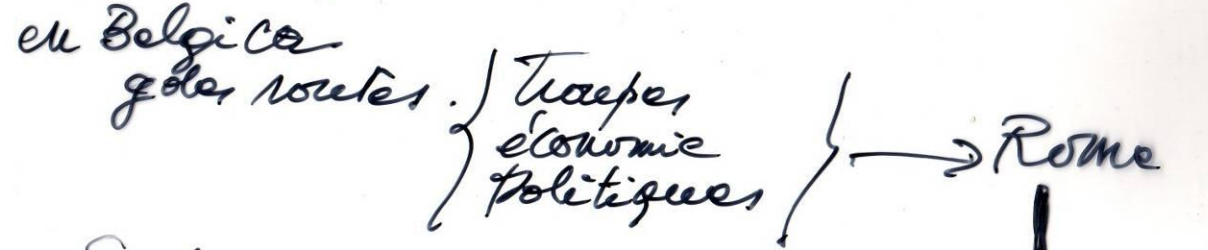 en Belgica
gdes routes.
Troupes
économie
Politiques
→ Rome